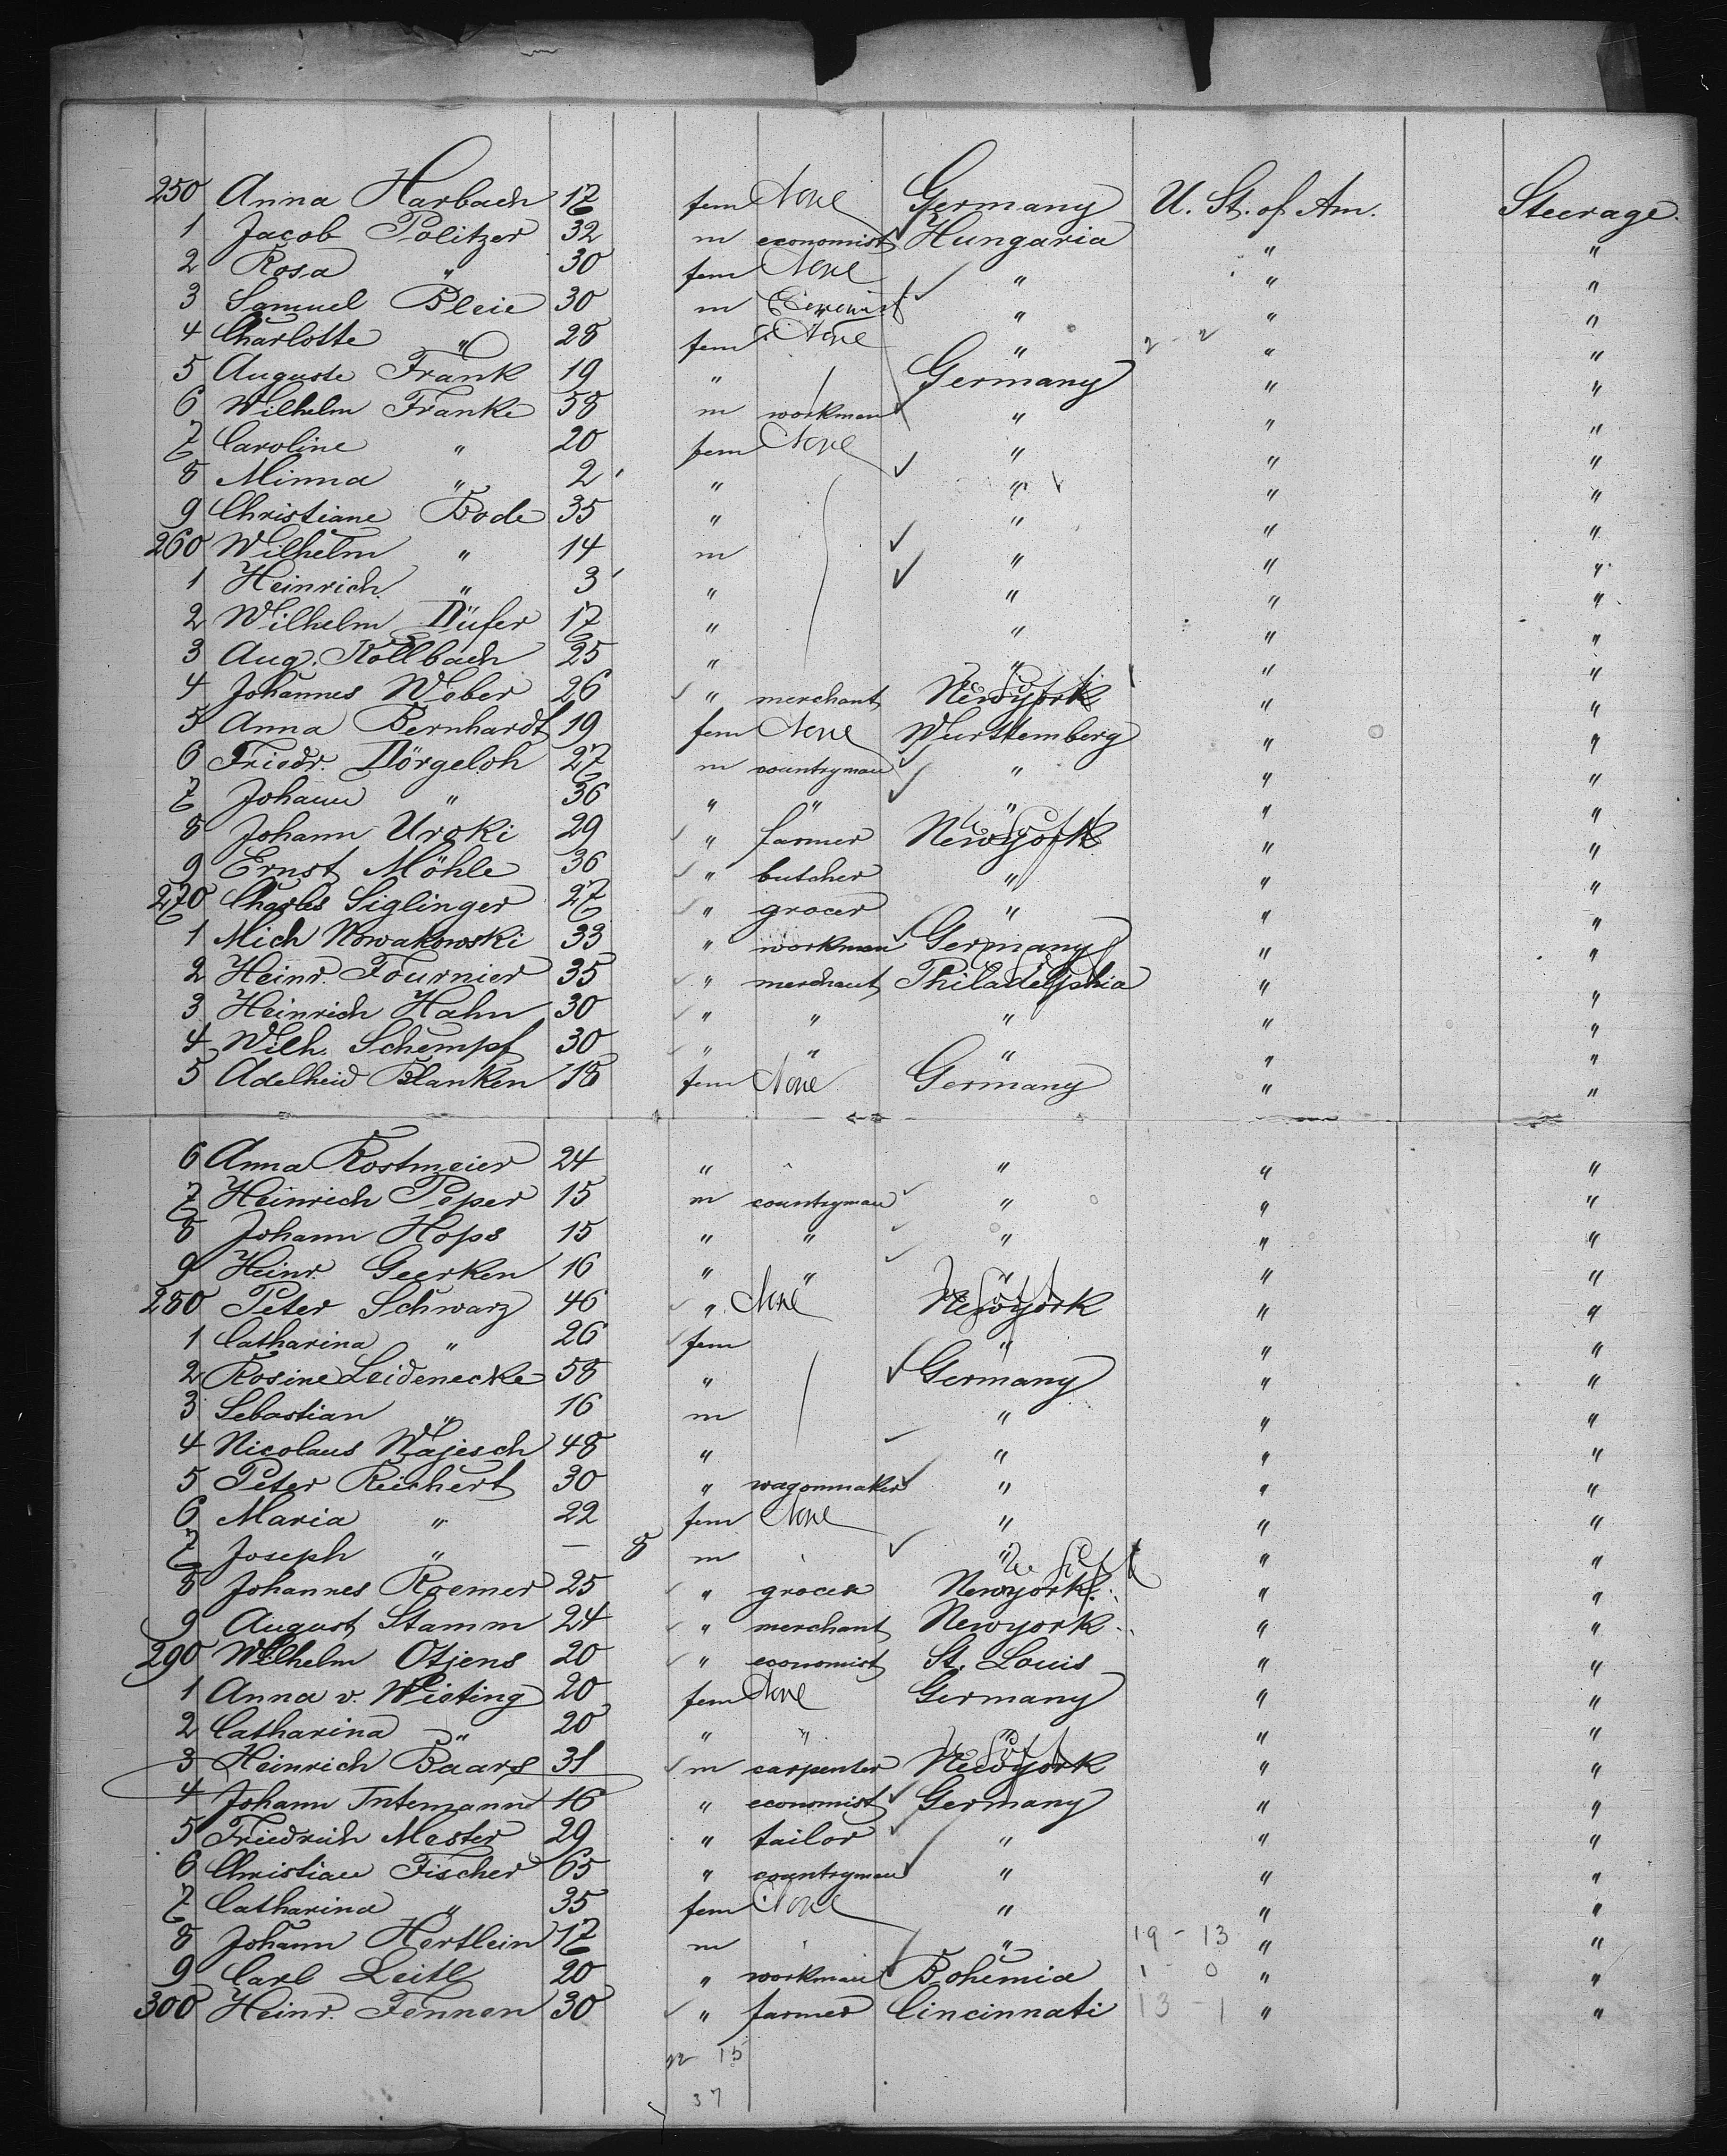 250 Anna Harbach 17 fem None Germany U. St. of Am. Steerage.
1 Jacob Politzer 32 m economist Hungaria " "
2 Rosa " 30 fem None " " "
3 Samuel Bleie 30 m Economist " " "
4 Charlotte " 28 fem None " 2 - 2 " "
5 Auguste Frank 19 " Germany " "
6 Wilhelm Franke 58 m workman " " "
7 Caroline " 20 fem None " " "
8 Minna " 2 " " " "
9 Christiane Bode 35 " " " "
260 Wilhelm " 14 m " " "
1 Heinrich " 3 " " " "
2 Wilhelm Düfer 17 " " " "
3 Aug. Kollbach 25 " " " "
4 Johannes Weber 26 " merchant Newyork " "
5 Anna Bernhardt 19 fem None Wurttemberg " "
6 Friedr. Dörgeloh 27 m countryman " " "
7 Johann " 36 " " " " "
8 Johann Uroki 29 " farmer Newyork " "
9 Ernst Möhle 36 " butcher " " "
270 Charles Siglinger 27 " grocer " " "
1 Mich Nowakowski 33 " workman Germany " "
2 Heinr. Fournier 35 " merchant Philadelphia " "
3 Heinrich Hahn 30 " " " " "
4 Wilh. Schempf 30 " " " " "
5 Adelheid Blanken 18 fem None Germany " "
6 Anna Rostmeier 24 " " " "
7 Heinrich Peper 15 m countryman " " "
8 Johann Hops 15 " " " " "
9 Heinr. Geerken 16 " " " " "
280 Peter Schwarz 46 " None Newyork " "
1 Catharina " 26 fem " " "
2 Rosine Leidenecke 58 " Germany " "
3 Sebastian " 16 m " " "
4 Nicolaus Wajesch 48 " " " "
5 Peter Reichert 30 " wagonmaker " " "
6 Maria " 22 fem None " " "
7 Joseph " — 8 m " " "
8 Johannes Roemer 25 " grocer Newyork " "
9 August Stamm 24 " merchant Newyork " "
290 Wilhelm Otjens 20 " economist St. Louis " "
1 Anna v. Wisting 20 fem None Germany " "
2 Catharina " 20 " " " " "
3 Heinrich Baars 31 m carpenter Newyork " "
4 Johann Intemann 16 " economist Germany " "
5 Friedrich Mester 29 " tailor " " "
6 Christian Fischer 65 " countryman " " "
7 Catharina " 35 fem None " " "
8 Johann Hertlein 17 m " 19 - 13 " "
9 Carl Leitl 20 " workman Bohemia 1 - 0 " "
300 Heinr. Fennen 30 " farmer Cincinnati 13 - 1 " "
15
37